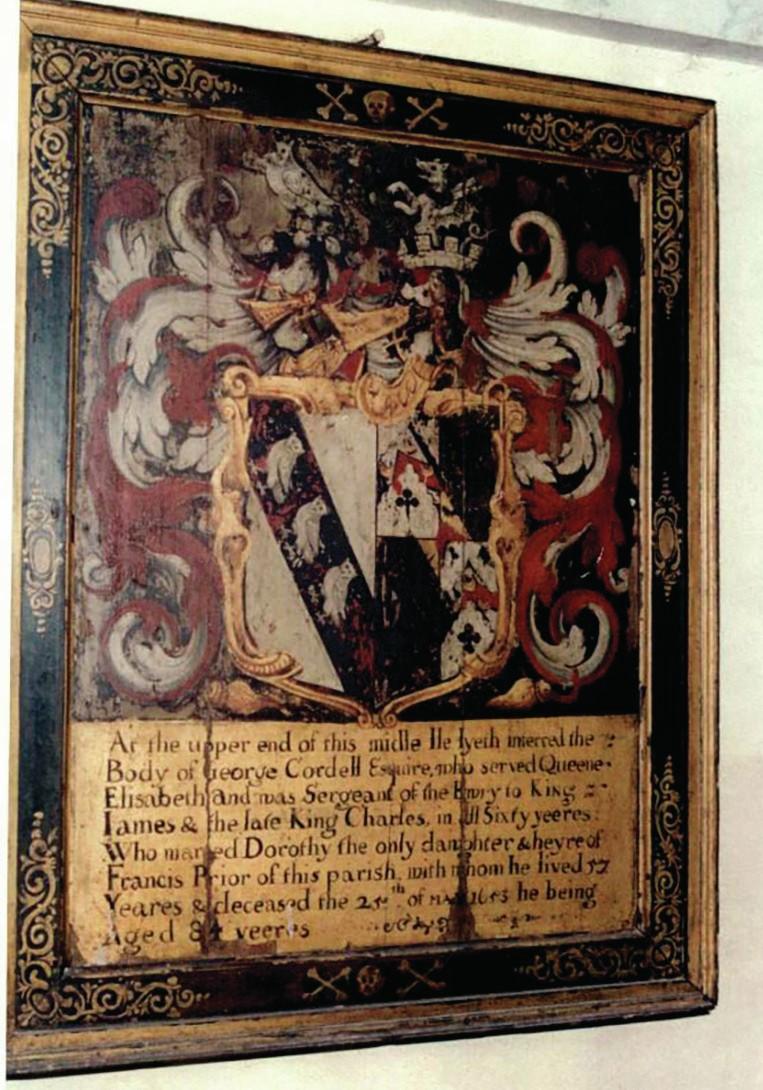 At the upper end of this midle Ile lyeth interred the
Body of George Cordell Esquire, who served Queene
Elisabeth and was Sergeant of the Ewry to King
Iames & the late King Charles, in all Sixty yeeres:
Who maried Dorothy the only daughter & heyre of
Francis Prior of this parish, with whom he lived 57
Yeares & deceased the 25th of 1653 he being
Aged 84 yeeres